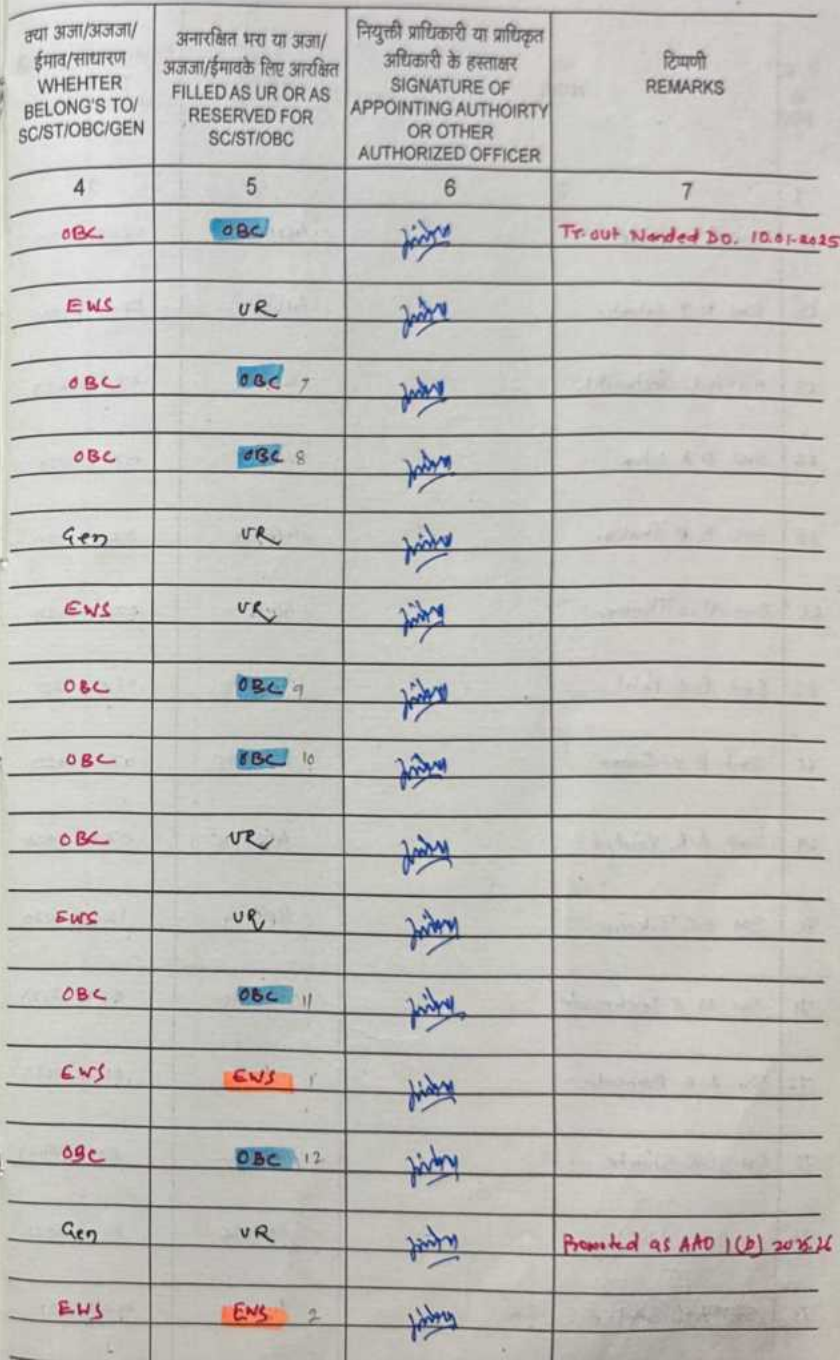 क्या अजा/अजजा/
ईमाव/साधारण
WHEHTER
BELONG'S TO/
SC/ST/OBC/GEN
अनारक्षित भरा या अजा/
अजजा/ईमावके लिए आरक्षित
FILLED AS UR OR AS
RESERVED FOR
SC/ST/OBC
नियुक्ती प्राधिकारी या प्राधिकृत
अधिकारी के हस्ताक्षर
SIGNATURE OF
APPOINTING AUTHOIRTY
OR OTHER
AUTHORIZED OFFICER
टिप्पणी
REMARKS
4 5 6 7
OBC OBC Tr. out Nanded DO. 10.01.2025
EWS UR
OBC OBC 7
OBC OBC 8
Gen UR
EWS UR
OBC OBC 9
OBC OBC 10
OBC UR
EWS UR
OBC OBC 11
EWS EWS 1
OBC OBC 12
Gen UR Promoted as AAO
EWS EWS 2